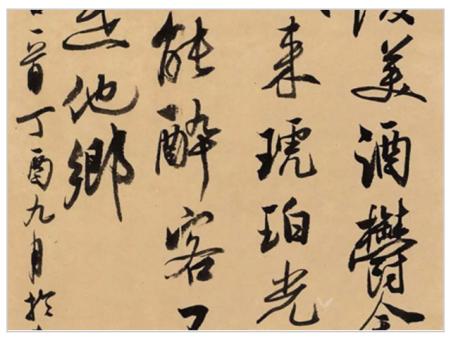 美酒鬱金
来琥珀光
能醉客
是他鄉
一首丁酉九月於